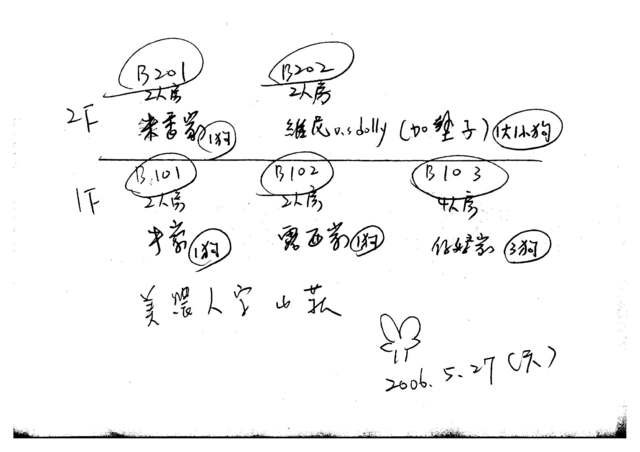 B201 B202
2人房 2人房
2F 米香家 1狗 維尼v.s dolly (加墊子) 1大1小狗
B101 B102 B103
1F 2人房 2人房 4人房
牛家 1狗 露西家 1狗 家 3狗
美濃人字山莊
2006.5.27(六)